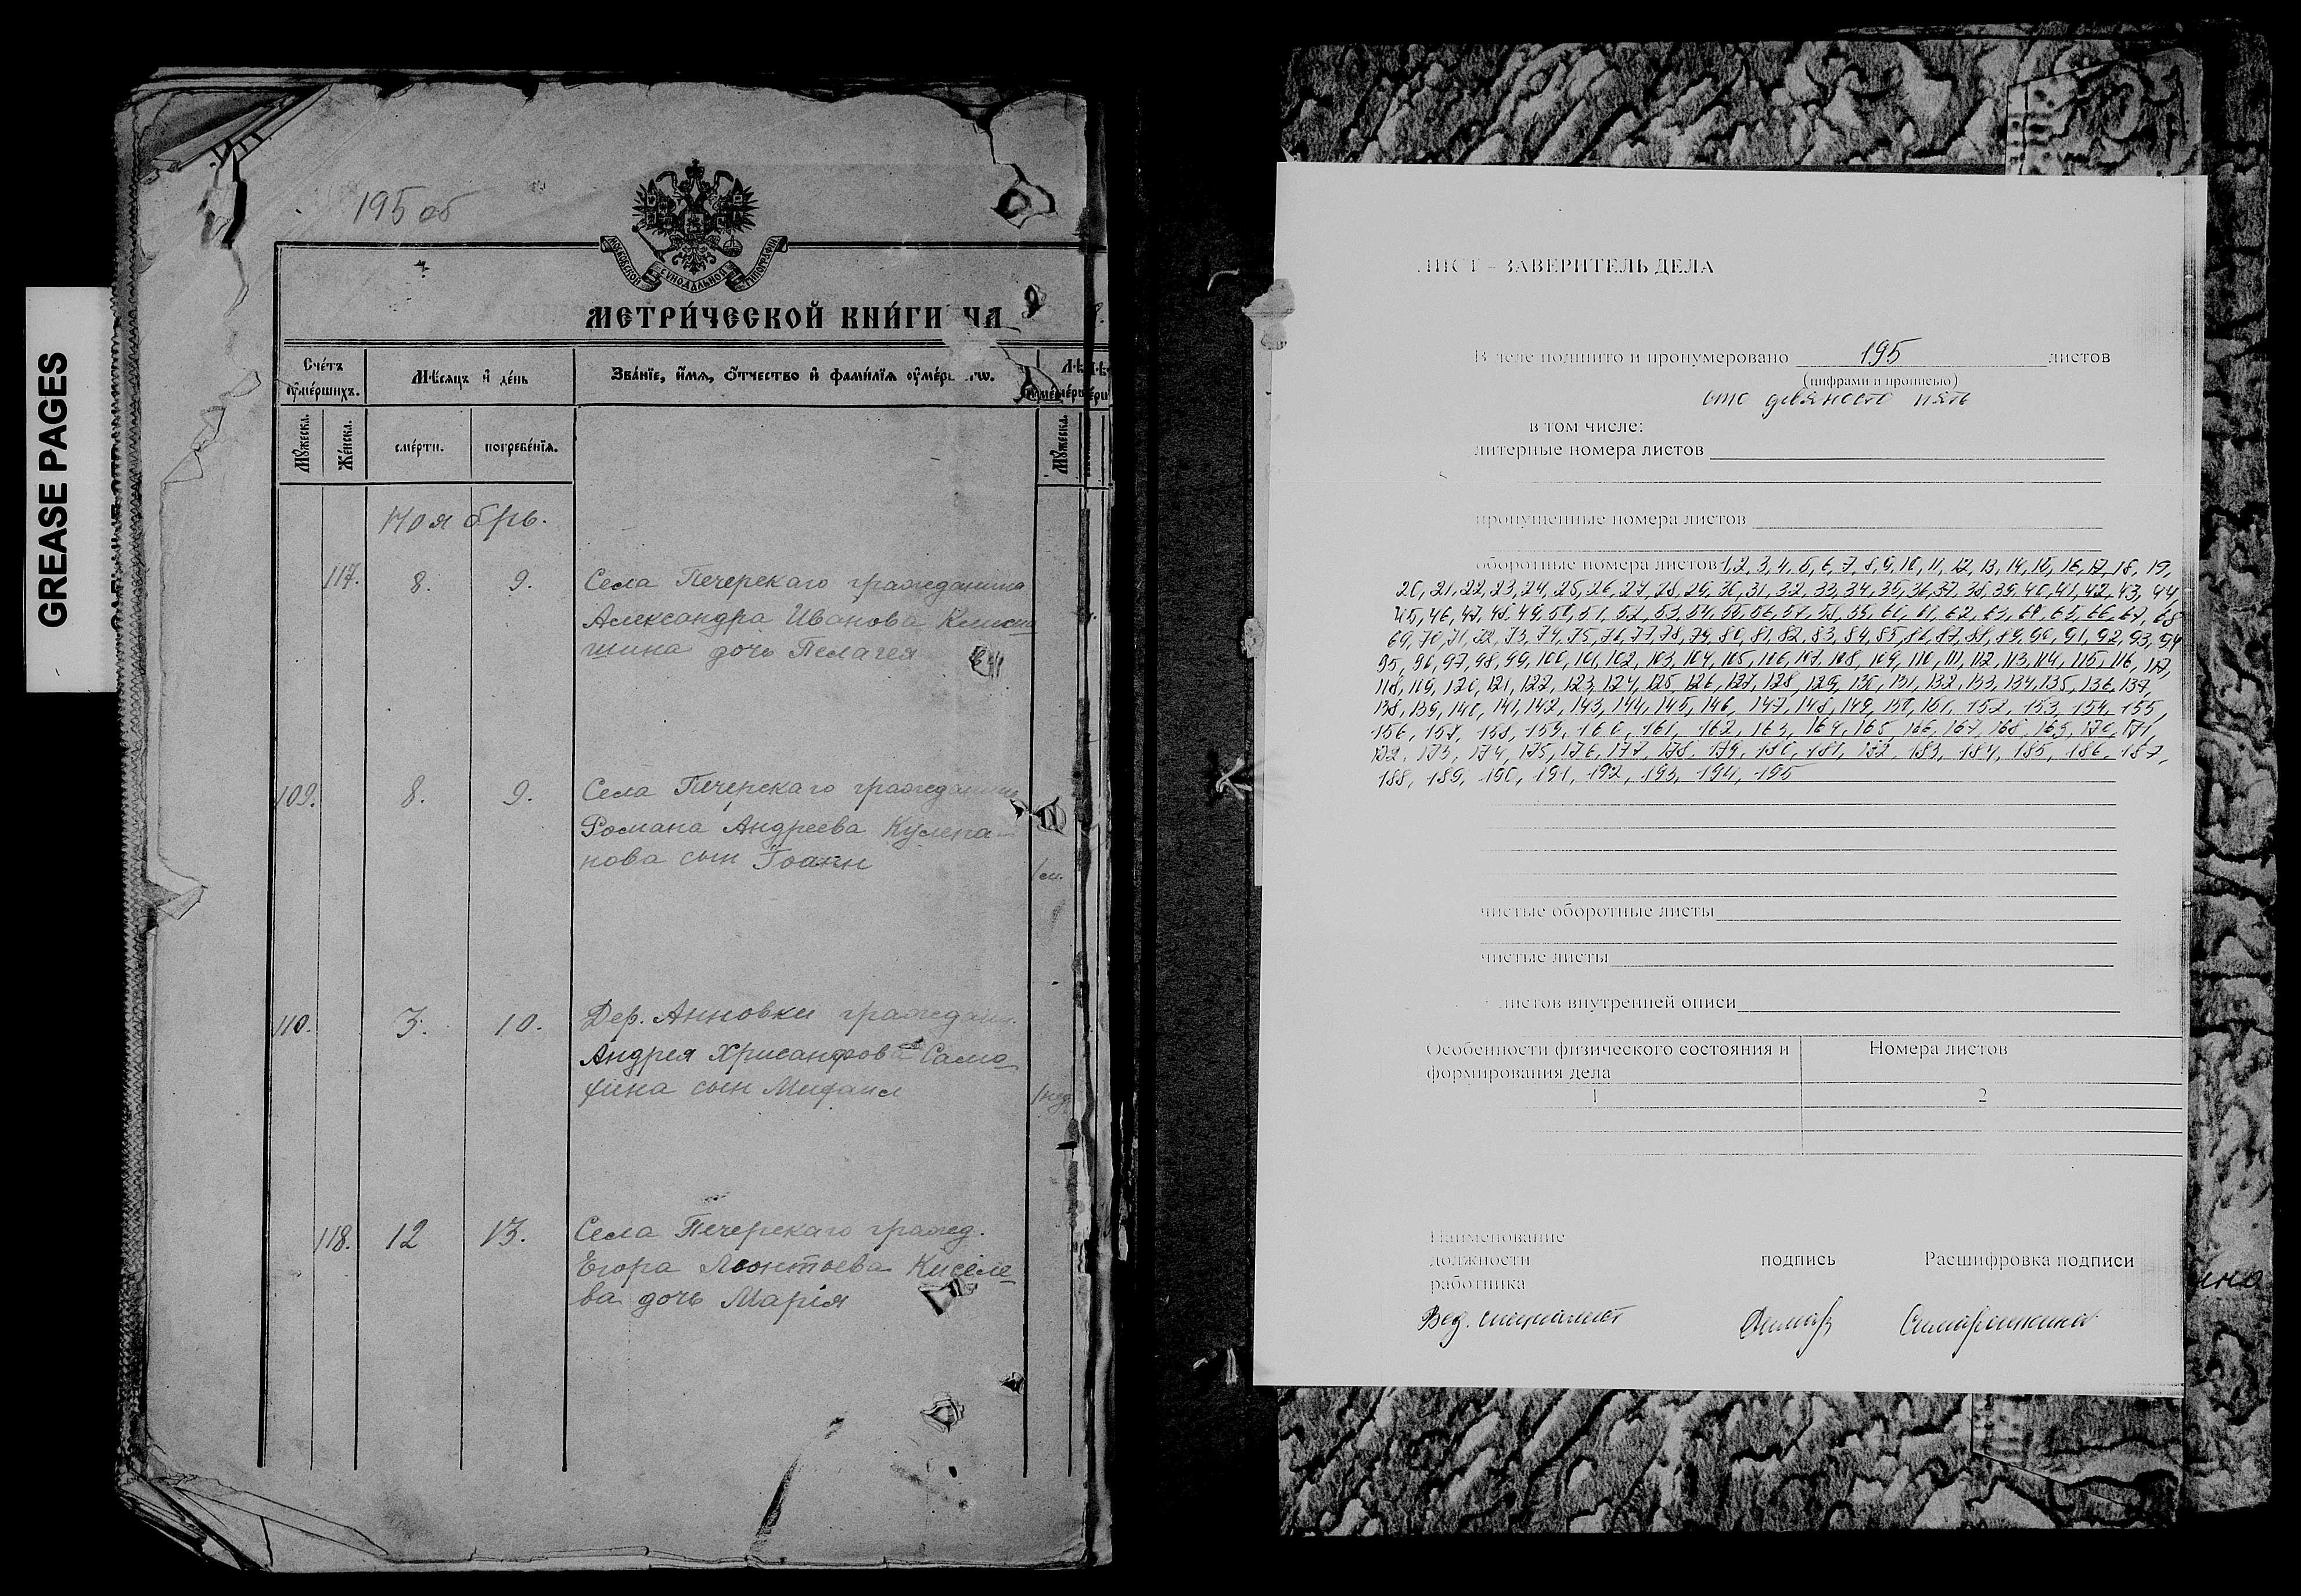 GREASE PAGES
195 об
МОСКОВСКОЙ СУНОДАЛЬНОЙ ТИПОГРАФІИ
МЕТРИ́ЧЕСКОЙ КНИ́ГИ ЧА
Сче́тъ ᲂу҆ме́ршихъ.
Мѣ́сѧцъ и҆ де́нь
Зва́нїе, и҆́мѧ, ѻ҆́тчество и҆ фами́лїѧ
Мꙋ́жеска.
Же́нска.
сме́рти.
погребе́нїѧ.
Мꙋ́жеска.
Ноябрь.
117. 8. 9. Села Печерскаго гражданина
Александра Иванова
шина дочь Пелагея
109. 8. 9. Села Печерскаго гражданина
Романа Андреева Кулепа-
нова сын Іоанн
110. 3. 10. Дер. Анновки граждан.
Андрея Хрисанфова Само
хина сын Михаил
118. 12 13. Села Печерскаго гражд.
Егора Леонтьева Киселе-
ва дочь Марія
ЛИСТ – ЗАВЕРИТЕЛЬ ДЕЛА
В деле подшито и пронумеровано 195 листов
(цифрами и прописью)
сто девяносто пять
в том числе:
литерные номера листов
пропущенные номера листов
оборотные номера листов 1, 2, 3, 4, 5, 6, 7, 8, 9, 10, 11, 12, 13, 14, 15, 16, 17, 18, 19,
20, 21, 22, 23, 24, 25, 26, 27, 28, 29, 30, 31, 32, 33, 34, 35, 36, 37, 38, 39, 40, 41, 42, 43, 44,
45, 46, 47, 48, 49, 50, 51, 52, 53, 54, 55, 56, 57, 58, 59, 60, 61, 62, 63, 64, 65, 66, 67, 68
69, 70, 71, 72, 73, 74, 75, 76, 77, 78, 79, 80, 81, 82, 83, 84, 85, 86, 87, 88, 89, 90, 91, 92, 93, 94
95, 96, 97, 98, 99, 100, 101, 102, 103, 104, 105, 106, 107, 108, 109, 110, 111, 112, 113, 114, 115, 116, 117,
118, 119, 120, 121, 122, 123, 124, 125, 126, 127, 128, 129, 130, 131, 132, 133, 134, 135, 136, 137,
138, 139, 140, 141, 142, 143, 144, 145, 146, 147, 148, 149, 150, 151, 152, 153, 154, 155,
156, 157, 158, 159, 160, 161, 162, 163, 164, 165, 166, 167, 168, 169, 170, 171,
172, 173, 174, 175, 176, 177, 178, 179, 180, 181, 182, 183, 184, 185, 186, 187,
188, 189, 190, 191, 192, 193, 194, 195
чистые оборотные листы
чистые листы
листов внутренней описи
Особенности физического состояния и Номера листов
формирования дела
1 2
Наименование
должности подпись Расшифровка подписи
работника
Вед. специалист